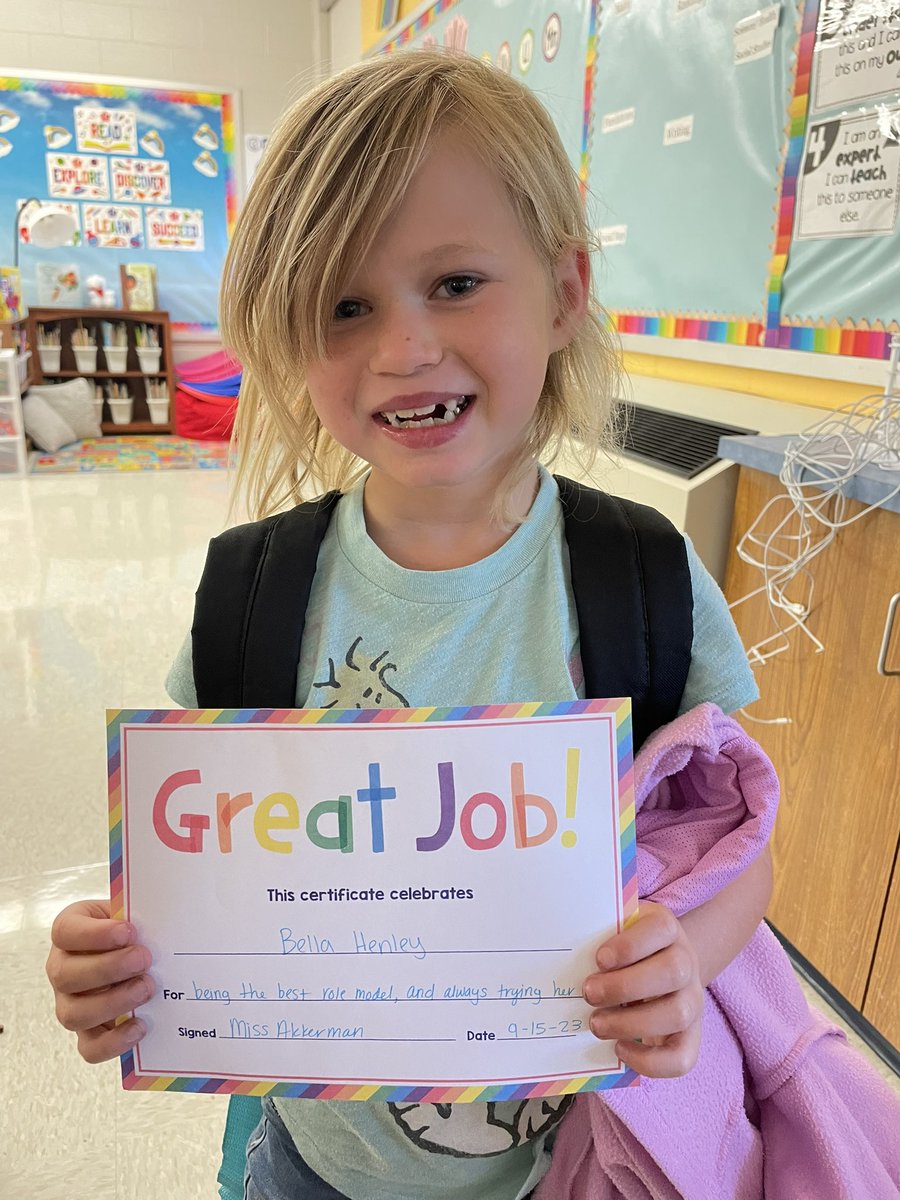 READ
EXPLORE
DISCOVER
LEARN
SUCCEED
Social Studies
Writing
this and I can
this on my OW
4
I am an
expert.
I can teach
this to someone
else.
Great Job!
This certificate celebrates
Bella Henley
For being the best role model, and always trying her
Signed Miss Akkerman Date 9-15-23